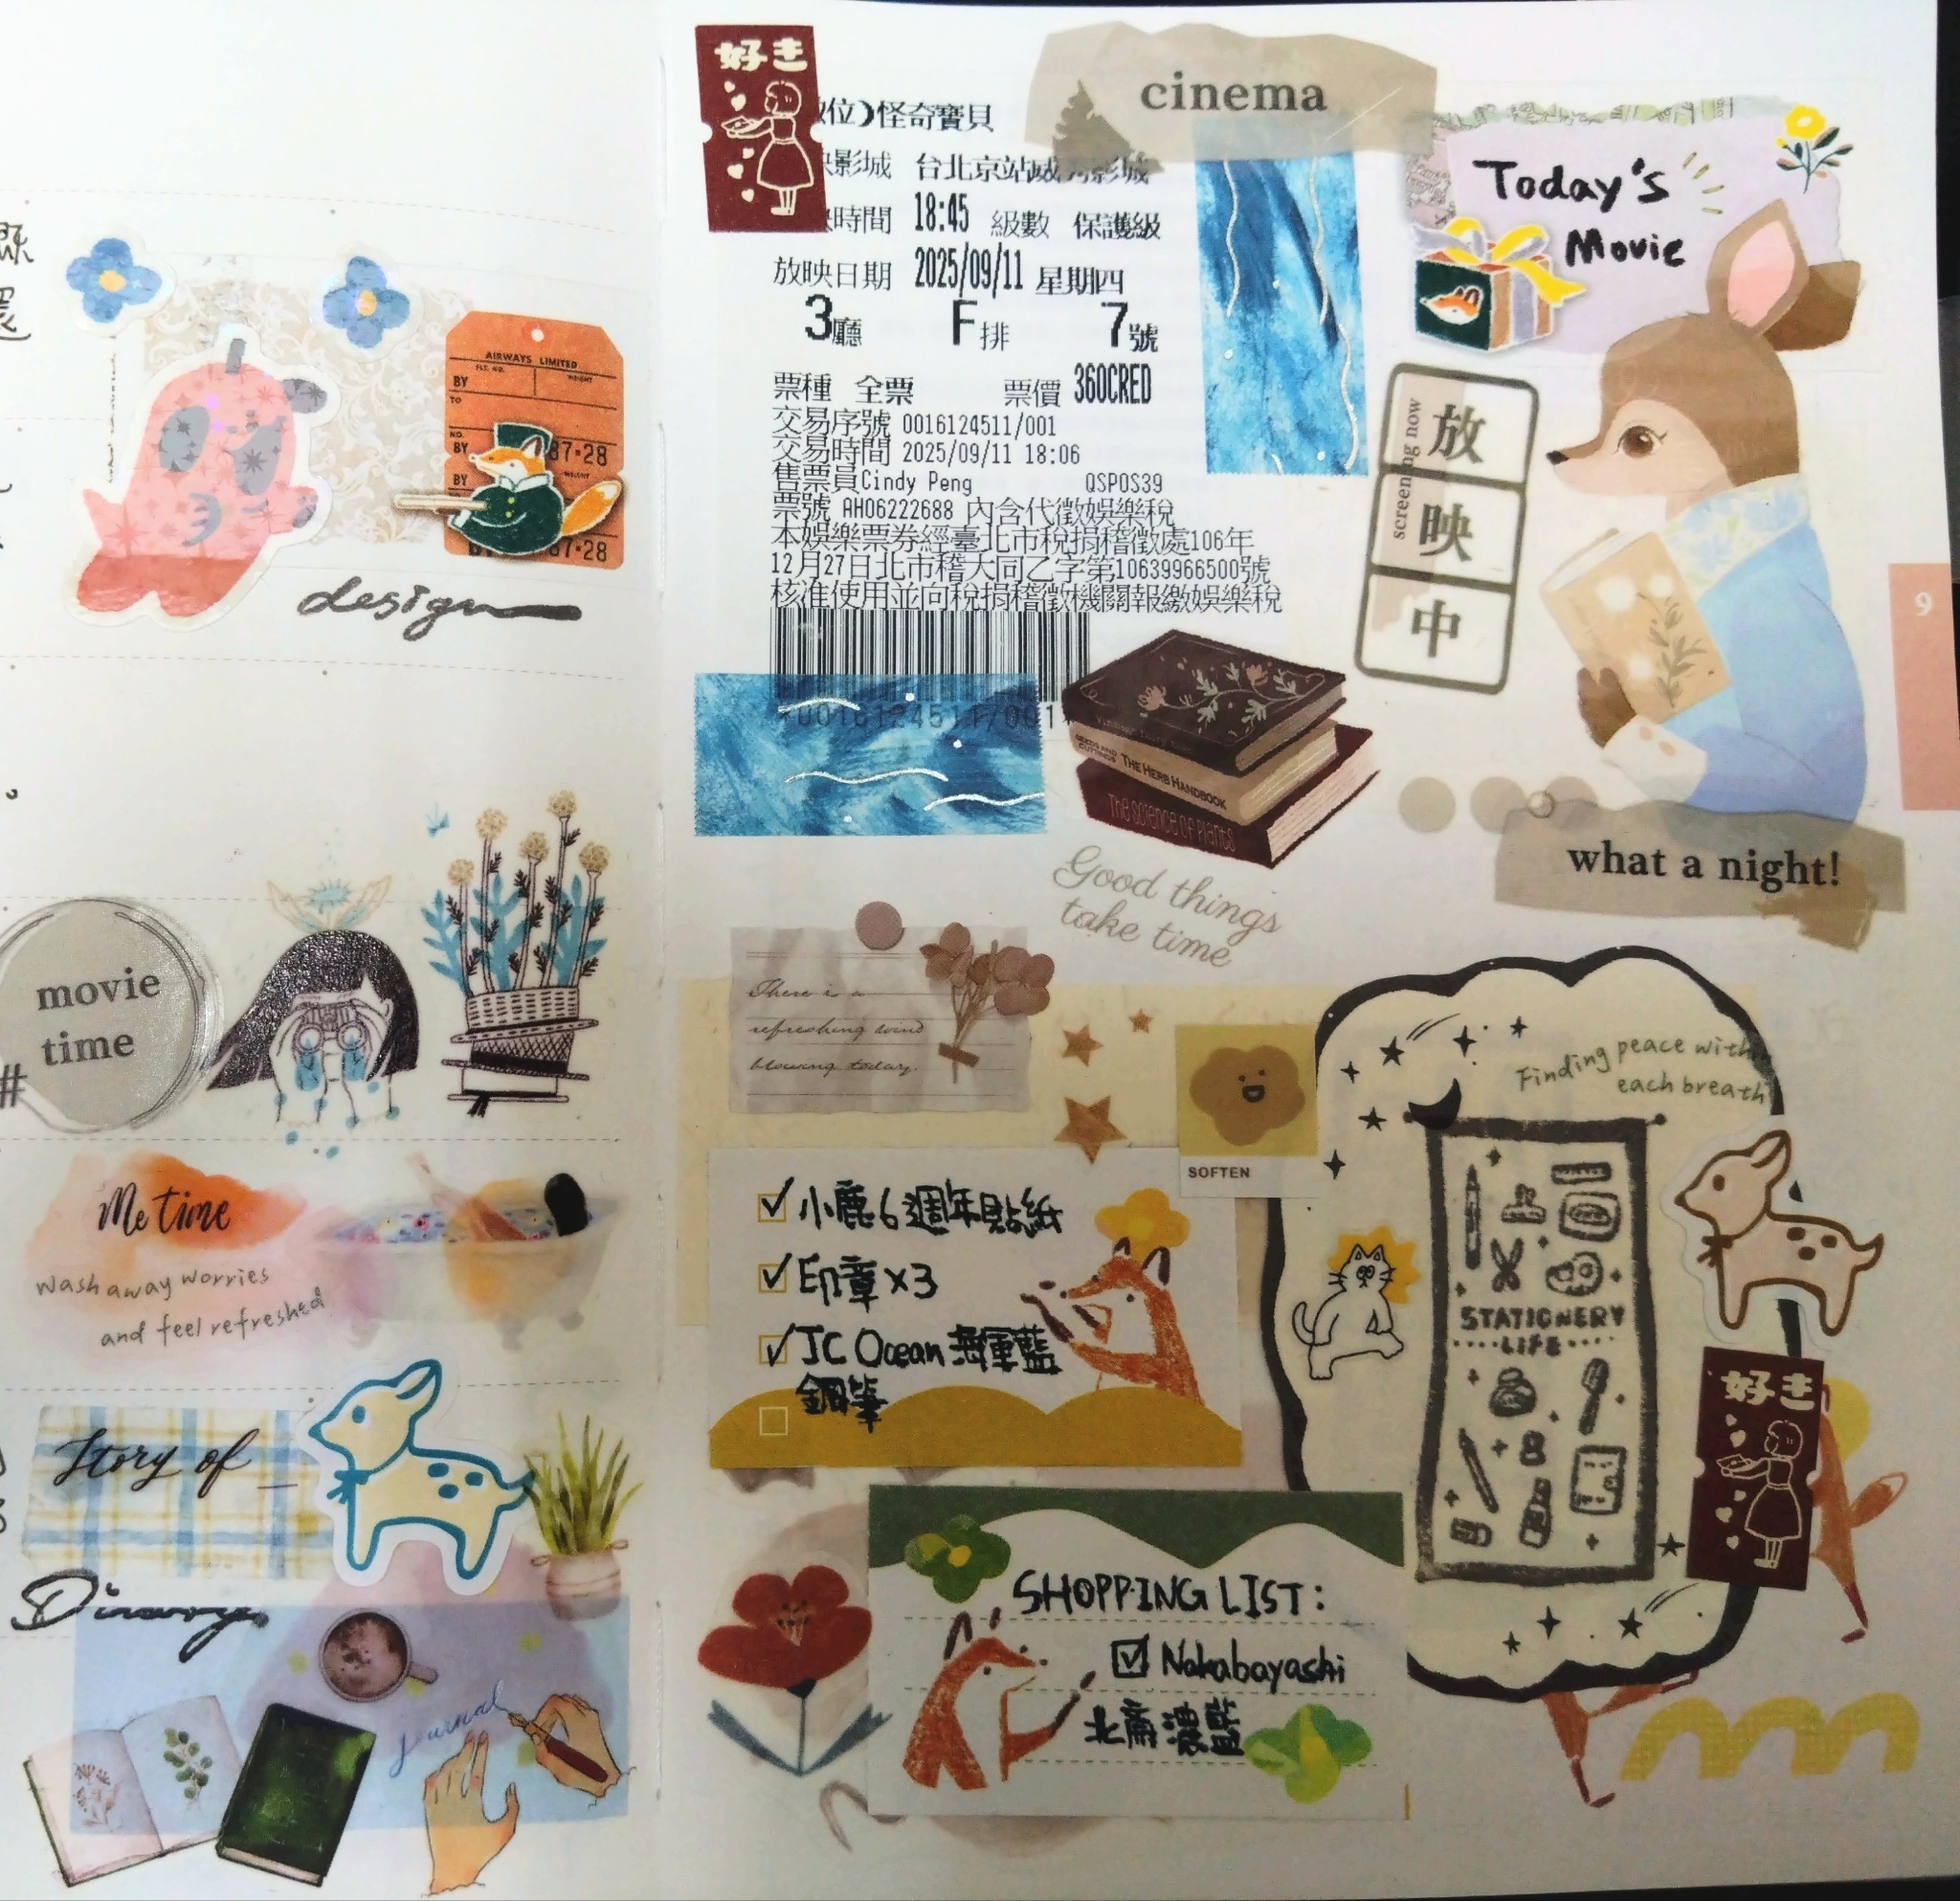 AIRWAYS LIMITED
FLT. NO.
WEIGHT
BY
TO
NO.
BY
87-28
BY
87-28
design
movie
time
#
Me time
wash away worries
and feel refreshed
Story of _
Diary
Journal
好き
位)怪奇寶貝
影城 台北京站威秀影城
時間 18:45 級數 保護級
放映日期 2025/09/11 星期四
3廳 F排 7號
票種 全票 票價 360CRED
交易序號 0016124511/001
交易時間 2025/09/11 18:06
售票員Cindy Peng QSPOS39
票號 AH06222688 內含代徵娛樂稅
本娛樂票券經臺北市稅捐稽徵處106年
12月27日北市稽大同乙字第10639966500號
核准使用並向稅捐稽徵機關報繳娛樂稅
*0016124511/001*
cinema
Today's
Movie
screening now
放
映
中
9
SEEDS AND CUTTINGS
THE HERB HANDBOOK
The science of Plants
Good things
take time
what a night!
There is a
refreshing wind
blowing today.
SOFTEN
Finding peace with
each breath
小鹿6週年貼紙
印章×3
JC Ocean 海軍藍
鋼筆
STATIONERY
LIFE
好き
SHOPPING LIST:
Nakabayashi
北齋 濃藍